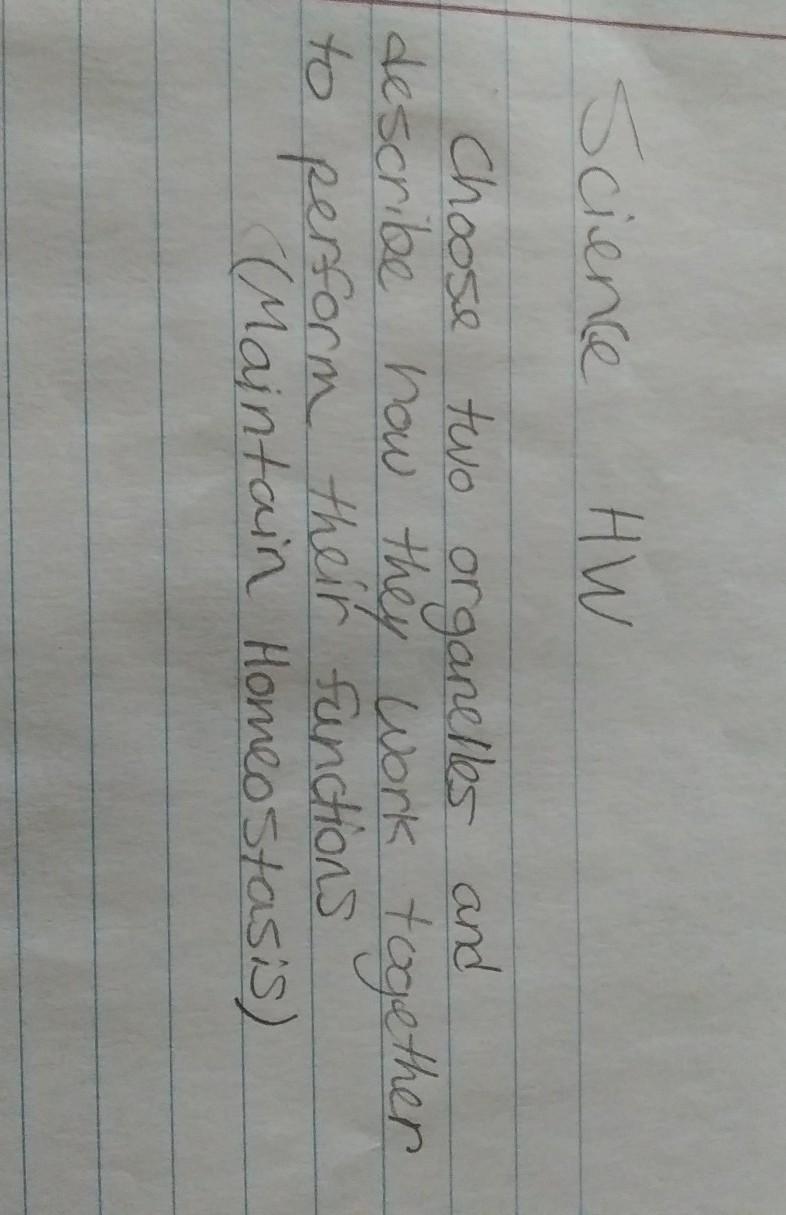 Science HW
Choose two organelles and
describe how they work together
to perform their functions
(Maintain Homeostasis)